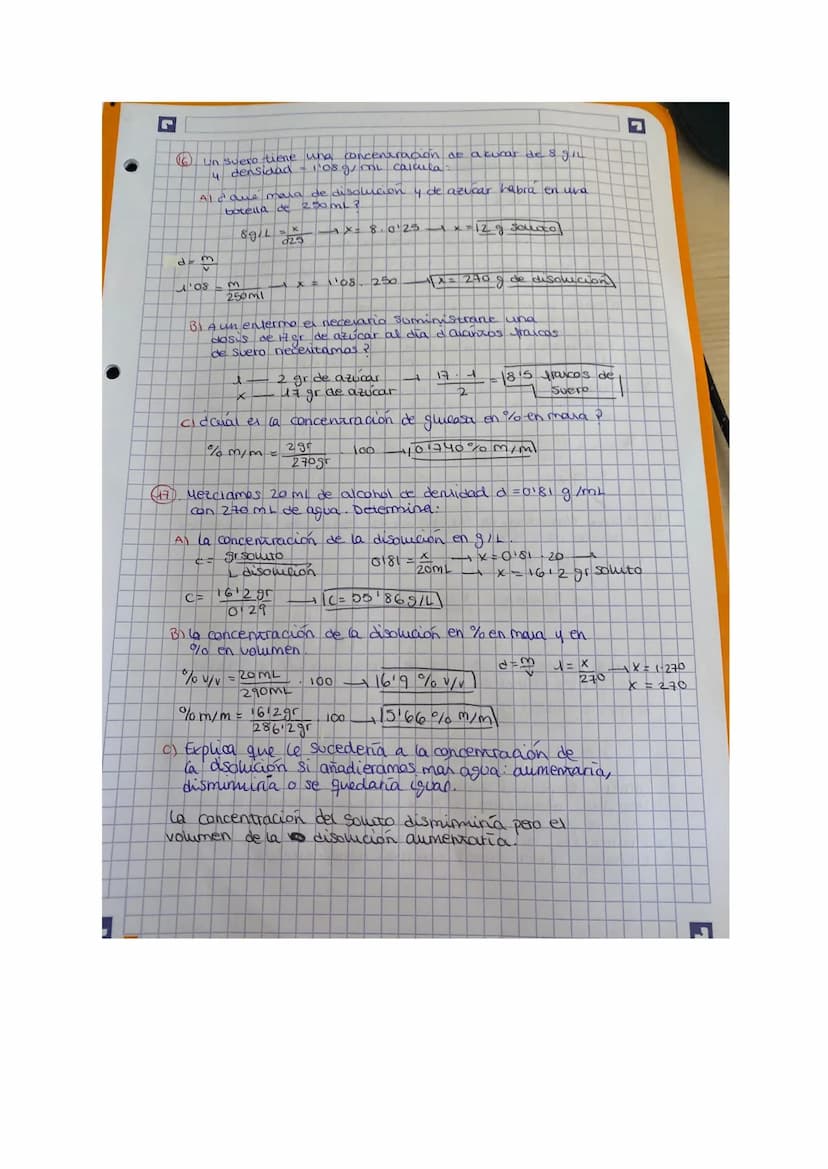 16 Un suero tiene una concentración de azúcar de 8 g/L
y densidad = 1'08 g/mL calcula:
A) ¿Qué masa de disolución y de azúcar habrá en una
botella de 250mL?
8g/L = x/0'25 → x = 8 · 0'25 → x = 2 g soluto
d = m/v
1'08 = m/250ml → x = 1'08 · 250 → x = 270 g de disolución
B) A un enfermo es necesario suministrarle una
dosis de 17gr de azúcar al día ¿Cuántos frascos
de suero necesitamos?
1 — 2 gr de azúcar → 17 · 1/2 = 8'5 frascos de suero
x — 17 gr de azúcar
C) ¿Cuál es la concentración de glucosa en % en masa?
% m/m = 2gr/270gr · 100 → 0'740 % m/m
17. Mezclamos 20 mL de alcohol de densidad d = 0'81 g/mL
con 270 mL de agua. Determina:
A) La concentración de la disolución en g/L.
c = gr soluto/L disolución 0'81 = x/20mL → x = 0'81 · 20 →
→ x = 16'2 gr soluto
C = 16'2 gr/0'29 → C = 55'86 g/L
B) La concentración de la disolución en % en masa y en
% en volumen
% v/v = 20mL/290mL · 100 → 6'9 % v/v d = m/v 1 = x/270 → x = 1·270
x = 270
% m/m = 16'2gr/286'2gr · 100 → 5'66 % m/m
C) Explica que le sucedería a la concentración de
la disolución si añadieramos mas agua: aumentaría,
disminuiría o se quedaría igual.
La concentración del soluto dismiminría pero el
volumen de la disolución aumentaría.